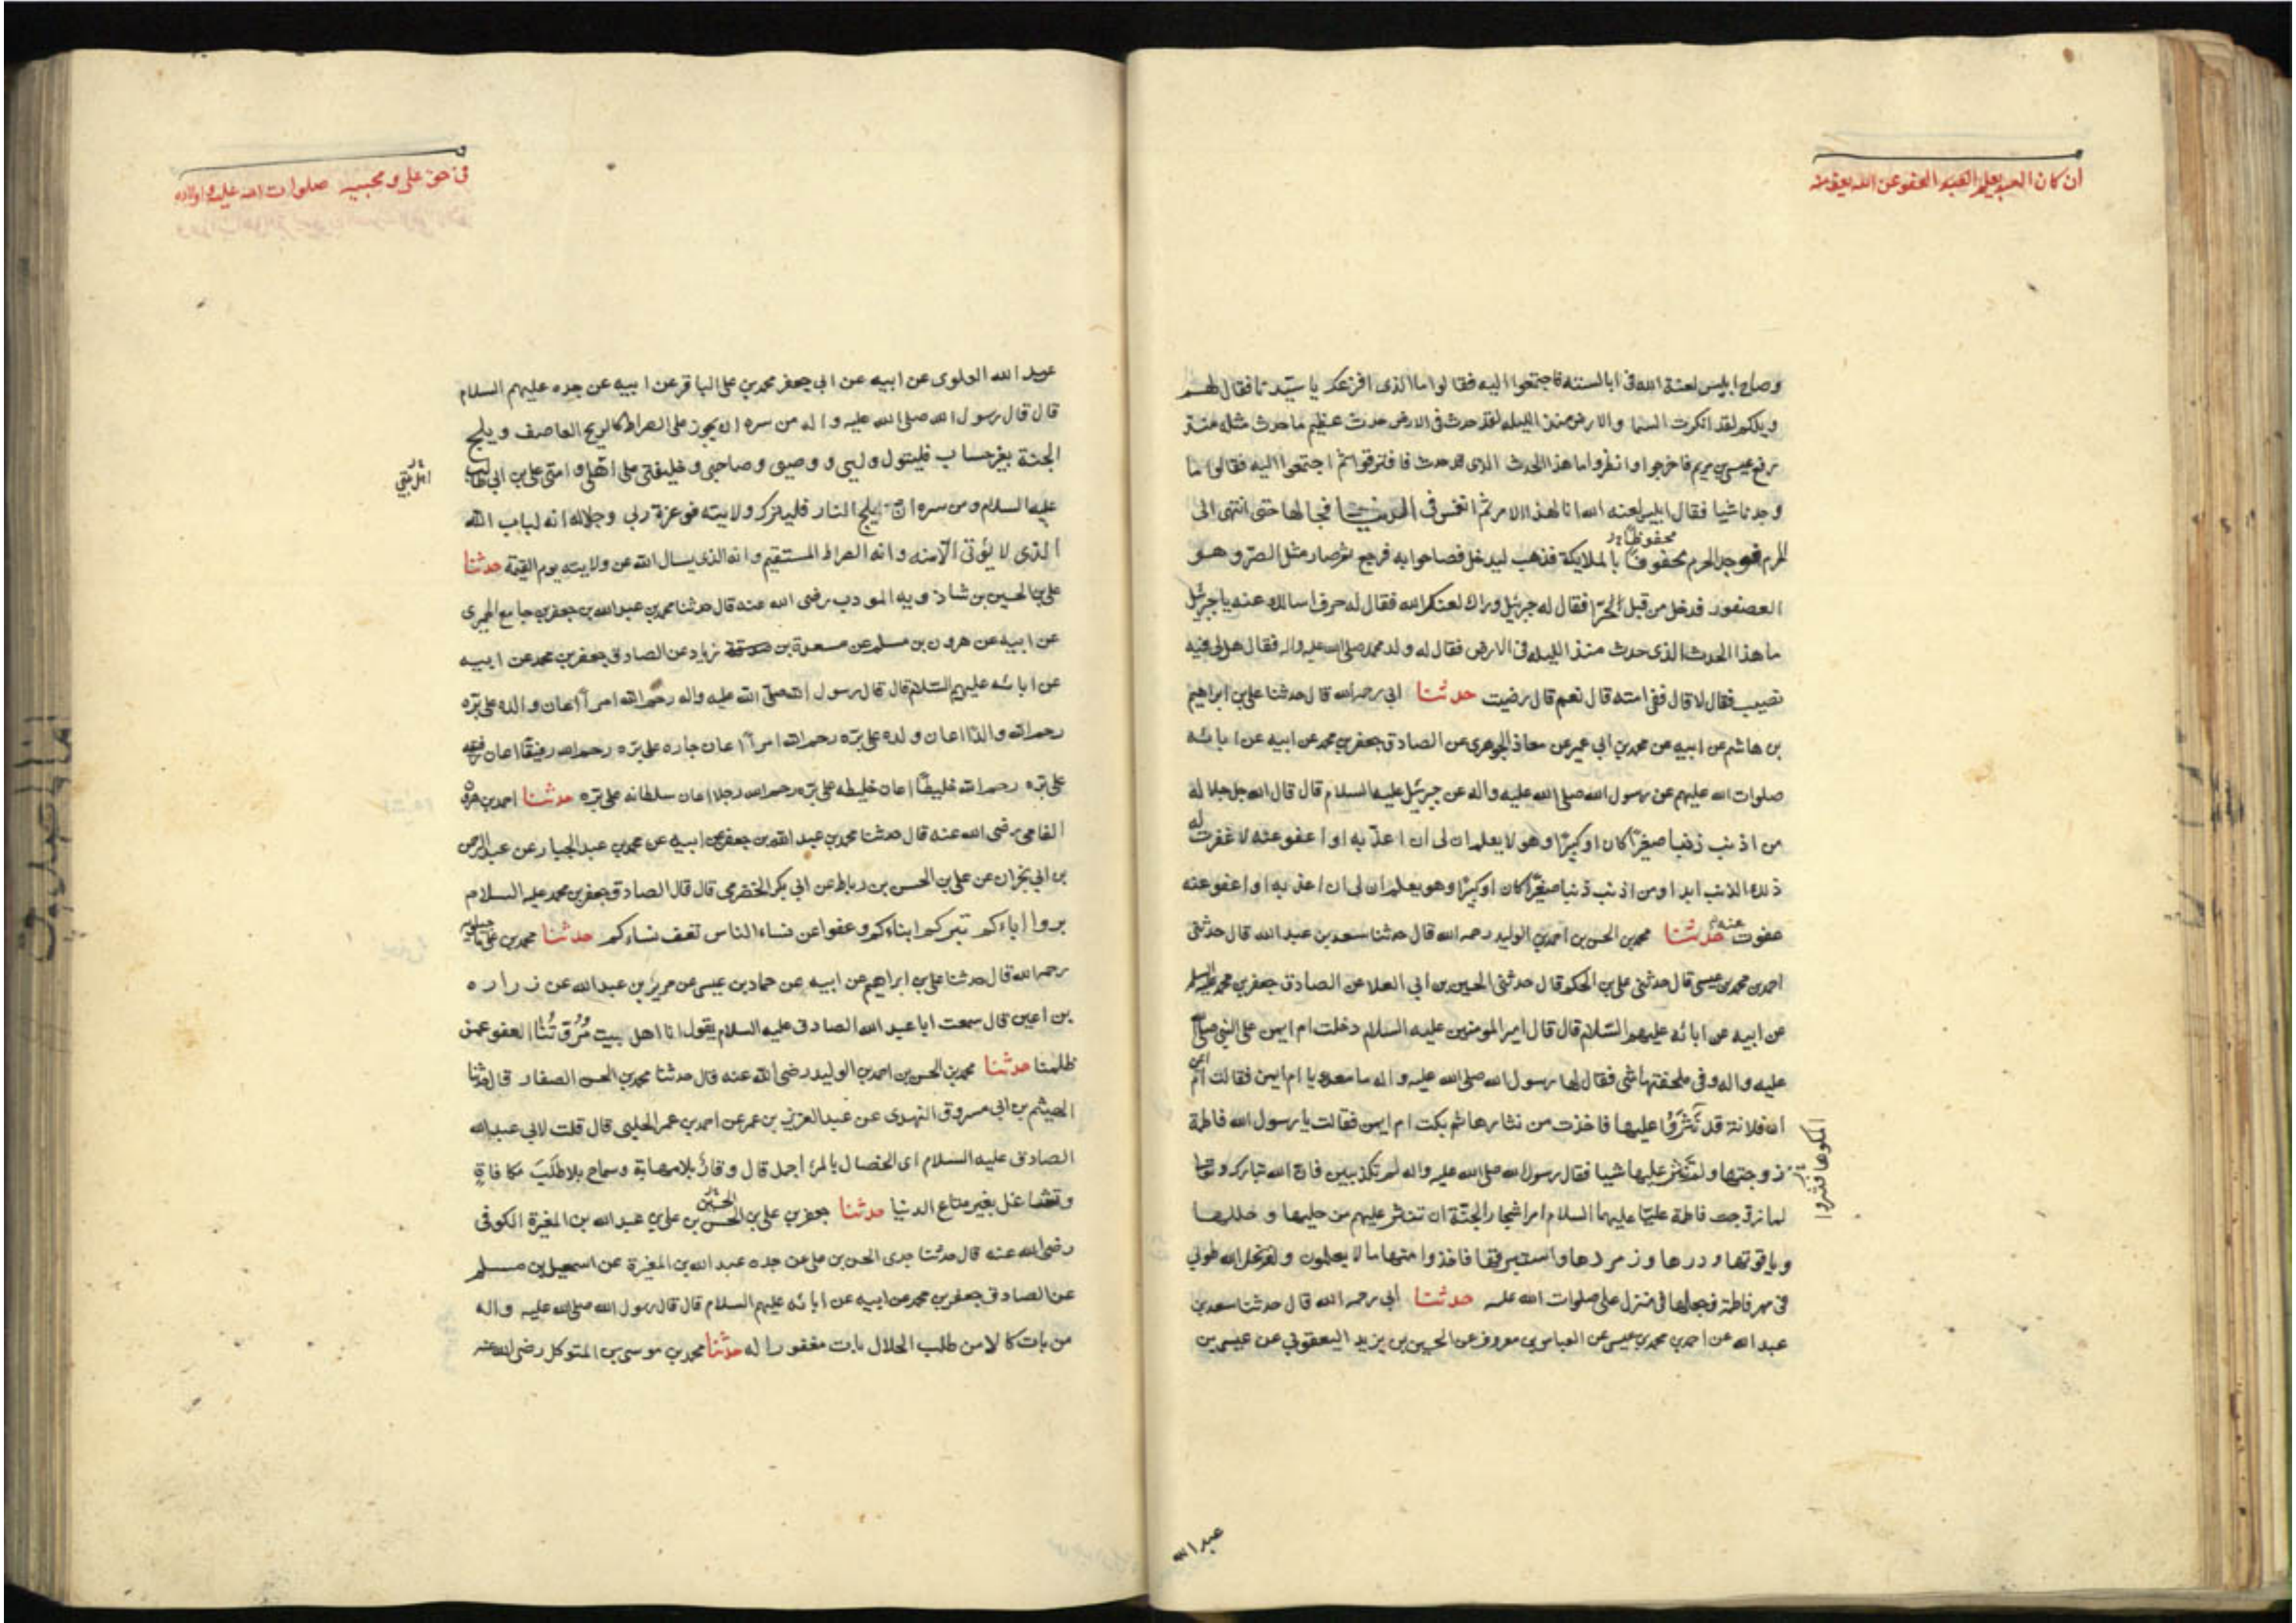 ان كان العبد يعلم العفو عن الله يعف عنه
وصاح ابليس لعنة الله فى ابالسته فاجتمعوا اليه فقالوا ما الذى افزعك يا سيدنا فقال لهم
ويلكم لقد انكرت السما والارض منذ الليله لقد حدث فى الارض حدث عظيم ما حدث مثله منذ
رفع عيسى بن مريم فاخرجوا وانظروا ما هذا الحدث الذى قد حدث فافترقوا ثم اجتمعوا اليه فقالوا ما
وجدنا شيا فقال ابليس لعنه الله انا لهذا الامر ثم انغمس فى الدنيا فجالها حتى انتهى الى
محفوظا
الحرم فوجد الحرم محفوفا بالملايكة فذهب ليدخل فصاحوا به فرجع ثم صار مثل الصر وهو
العصفور فدخل من قبل الحرا فقال له جبرئيل وراك لعنك الله فقال له حرف اسالك عنه يا جبرئيل
ما هذا الحدث الذى حدث منذ الليله فى الارض فقال له ولد محمد صلى الله عليه واله فقال هل لى فيه
نصيب فقال لا قال ففى امته قال نعم قال رضيت حدثنا ابى رحمه الله قال حدثنا على بن ابراهيم
بن هاشم عن ابيه عن محمد بن ابى عمير عن معاذ الجوهرى عن الصادق جعفر بن محمد عن ابيه عن ابائه
صلوات الله عليهم عن رسول الله صلى الله عليه واله عن جبرئيل عليه السلام قال قال الله جل جلاله
من اذنب ذنبا صغيرا كان او كبيرا وهو لا يعلم ان لى ان اعذبه او اعفو عنه لا غفرت له
ذلك الذنب ابدا ومن اذنب ذنبا صغيرا كان او كبيرا وهو يعلم ان لى ان اعذبه او اعفو عنه
عفوت عنه حدثنا محمد بن الحسن بن احمد بن الوليد رحمه الله قال حدثنا سعد بن عبد الله قال حدثنى
احمد بن محمد بن عيسى قال حدثنى على بن الحكم قال حدثنى الحسين بن ابى العلا عن الصادق جعفر بن محمد عليه السلم
عن ابيه عن ابائه عليهم السلام قال قال امير المومنين عليه السلام دخلت ام ايمن على النبى صلى الله
عليه واله وفى ملحفتها شى فقال لها رسول الله صلى الله عليه واله ما معك يا ام ايمن فقالت
ان فلانة قد نثروا عليها فاخذت من نثارها ثم بكت ام ايمن فقالت يا رسول الله فاطمة
املكوها فنثروا
زوجتها ولم تنثر عليها شيا فقال رسول الله صلى الله عليه واله لم تكذبين فان الله تبارك وتعالى
لما زوجت فاطمة عليا عليهما السلام امر اشجار الجنة ان تنثر عليهم من حليها وحللها
وياقوتها ودرها وزمردها واستبرقها فاخذوا منها ما لا يعلمون ولقد نحل الله طوبى
فى مهر فاطمة فجعلها فى منزل على صلوات الله عليه حدثنا ابى رحمه الله قال حدثنا سعد بن
عبد الله عن احمد بن محمد بن عيسى عن العباس بن معروف عن الحسين بن يزيد اليعقوبى عن عيسى بن
عبد الله
فى حق على ومحبيه صلوات الله عليه واولاده
عبد الله العلوى عن ابيه عن ابى جعفر محمد بن على الباقر عن ابيه عن جده عليهم السلام
قال قال رسول الله صلى الله عليه واله من سره ان يجوز على الصراط كالريح العاصف ويلج
الجنة بغير حساب فليتول وليى ووصيى وصاحبى وخليفتى على اهلى وامتى على بن ابى طالب
عليه السلام ومن سره ان يلج النار فليترك ولايته فوعزة ربى وجلاله انه لباب الله
الذى لا يؤتى الا منه وانه الصراط المستقيم وانه الذى يسال الله عن ولايته يوم القيمة حدثنا
على بن الحسين بن شاذويه المودب رضى الله عنه قال حدثنا محمد بن عبد الله بن جعفر بن جامع الحميرى
عن ابيه عن هرون بن مسلم عن مسعدة بن صدقة زياد عن الصادق جعفر بن محمد عن ابيه
عن ابائه عليهم السلام قال قال رسول الله صلى الله عليه واله رحم الله امرأ اعان والده على بره
رحم الله والدا اعان ولده على بره رحم الله امرأ اعان جاره على بره رحم الله رفيقا اعان رفيقه
على بره رحم الله خليطا اعان خليطه على بره رحم الله رجلا اعان سلطانه على بره حدثنا احمد بن هرون
الفامى رضى الله عنه قال حدثنا محمد بن عبد الله بن جعفر عن ابيه عن محمد بن عبد الجبار عن عبد الرحمن
بن ابى نجران عن على بن الحسن بن رباط عن ابى بكر الحضرمى قال قال الصادق جعفر بن محمد عليه السلام
بروا اباءكم تبركم ابناءكم وعفوا عن نساء الناس تعف نساءكم حدثنا محمد بن على ماجيلويه
رحمه الله قال حدثنا على بن ابراهيم عن ابيه عن حماد بن عيسى عن حريز بن عبد الله عن زراره
بن اعين قال سمعت ابا عبد الله الصادق عليه السلام يقول انا اهل بيت مروتنا العفو عمن
ظلمنا حدثنا محمد بن الحسن بن احمد بن الوليد رضى الله عنه قال حدثنا محمد بن الحسن الصفار قال حدثنا
الهيثم بن ابى مسروق النهدى عن عبد العزيز بن عمر عن احمد بن عمر الحلبى قال قلت لابى عبد الله
الصادق عليه السلام اى الخصال بالمرء اجمل قال وقار بلا مهابة وسماح بلا طلب مكافاة
وتشاغل بغير متاع الدنيا حدثنا جعفر بن على بن الحسن بن على بن عبد الله بن المغيرة الكوفى
رضى الله عنه قال حدثنا جدى الحسن بن على عن جده عبد الله بن المغيرة عن اسمعيل بن مسلم
عن الصادق جعفر بن محمد عن ابيه عن ابائه عليهم السلام قال قال رسول الله صلى الله عليه واله
من بات كالا من طلب الحلال بات مغفورا له حدثنا محمد بن موسى بن المتوكل رضى الله عنه